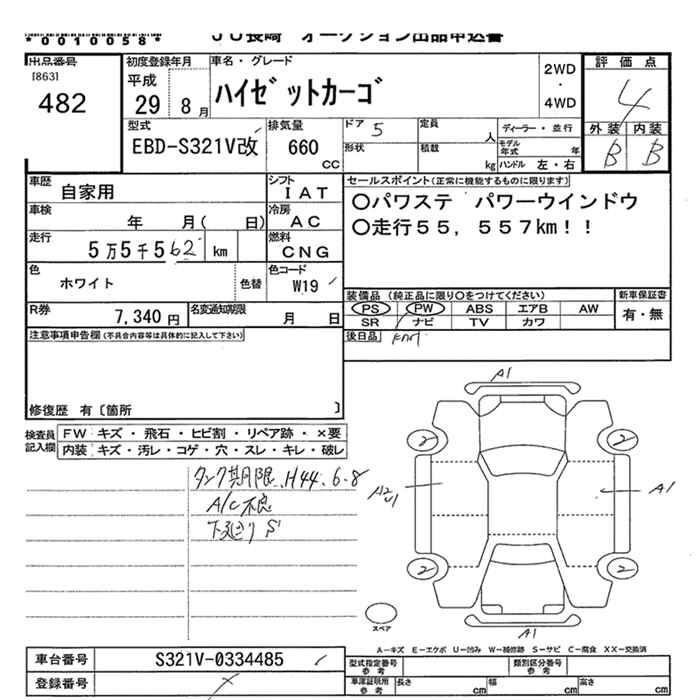 *0010058* JU長崎 オークション出品申込書
出品番号 初度登録年月 車名・グレード 評価点
[863] 平成 2WD
482 29 8月 ハイゼットカーゴ ・ 4
4WD
外装 内装
型式 排気量 ドア 5 定員 人 ディーラー・並行 B B
EBD-S321V改 660 cc 形状 積載 kg モデル年式 年
ハンドル 左・右
車歴 自家用 シフト IAT セールスポイント(正常に機能するものに限ります)
車検 年 月( 日) 冷房 AC 〇パワステ パワーウインドウ
走行 5万5千562 km 燃料 CNG 〇走行55,557km!!
色 ホワイト 色替 色コード W19
装備品(純正品に限り〇をつけてください) 新車保証書
R券 7,340円 名変通知期限 月 日 PS PW ABS エアB AW 有・無
SR ナビ TV カワ
注意事項申告欄(不具合内容等は具体的に記入して下さい) 後日品
修復歴 有〔箇所 〕
検査員記入欄 FW キズ・飛石・ヒビ割・リペア跡・×要
内装 キズ・汚レ・コゲ・穴・スレ・キレ・破レ
タンク期限 H44.6.8
A/C不良
下廻り S1
A1
2 2
A2 U1 A1
2 2
スペア A1
A-キズ E-エクボ U-凹み W-補修跡 S-サビ C-腐食 XX-交換済
車台番号 S321V-0334485 型式指定番号 参考 類別区分番号 参考
登録番号 車庫証明用 参考 長さ cm 幅 cm 高さ cm